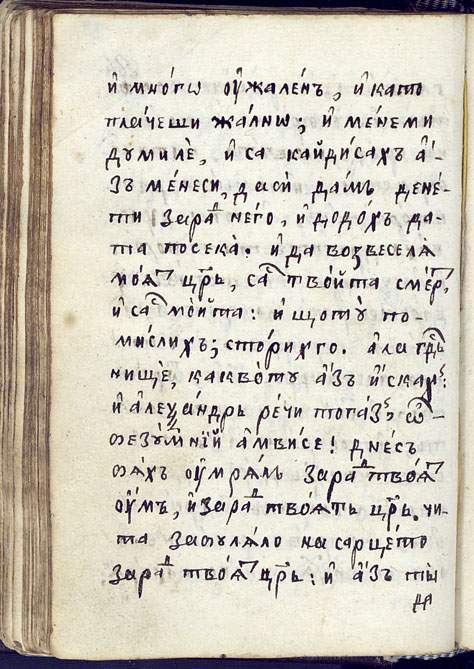 и҆ мно́гѡ ѹ҆жале́нъ, и҆ като
пла́чеши жа́лнѡ; и҆ ме́неми
думилѐ, и҆ са кайди́сахъ а҆́-
зъ ме́неси, даси́ да́мъ дене́-
ти зараⷣ не́го, и҆ додо́хъ да-
та посека̀. и҆ да возвеселѧ
моѧ҆̀ црⷭ҇ь, саⷭ҇ тво́йта смеⷬ҇т,
и҆ саⷭ҇ мо́йта: и҆ щоту̀ по-
ми́слихъ; сто́рихго. а҆ла грⷣь
нищѐ, какво́ту а҆́зъ и҆ска́хъ:
и҆ а҆леѯа́ндръ ре́чи тога́зъ, ѽ-
безу́мнїй а҆мви́се! дне́съ
бѧ́хъ ѹ҆мрѧ́лъ зараⷣ тво́ѧ
ѹ҆́мъ, и҆ зараⷣ тво́ѧтъ црⷭ҇ь. чи-
та забулѧ́ло на сарце́то
зараⷣ тво́ѧ црⷭ҇ь: и҆ а҆́зъ ты̀
да